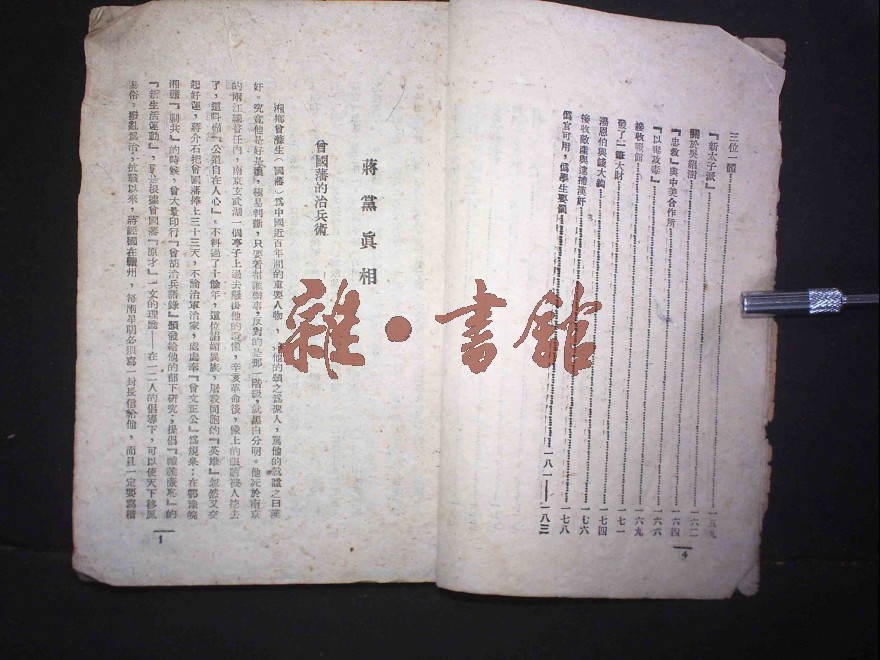 三位一體……一五九
『新太子派』……一六二
關於吳紹澍……一六四
『忠救』與中美合作所……一六六
『以毒攻毒』……一六九
接收報館……一七一
發了一筆大財……一七四
湯恩伯與錢大鈞……一七六
接收敵產與逮捕漢奸……一七八
僞官可用，僞學生要甄……一八一——一八三
4
蔣黨眞相
曾國藩的治兵術
湘鄉曾滌生（國藩）爲中國近百年間的重要人物，他的頌之爲聖人，罵他的就謚之曰漢
奸。究竟他是好是壞，極易判斷，只要看幫誰辦事，反對的是那一階級，就黑白分明。他死於南京
的兩江總督任內，南京玄武湖一個亭子上過去懸供他的遺像，辛亥革命後，像上的眼睛被人挖去
了，這叫做『公道自在人心』。不料過了十餘年，這位諂媚異族，屠殺同胞的『英雄』忽然又交
起好運，蔣介石把曾國藩捧上三十三天，不論治軍治家，處處奉『曾文正公』爲規臬：在鄂豫皖
湘贛『剿共』的時候，曾大量印行『曾胡治兵語錄』頒發給他的部下研究；提倡『禮義廉恥』的
『新生活運動』，更是根據曾國藩『原才』一文的理論——在一二人的倡導下，可以使天下移風
易俗，撥亂爲治；抗戰以來，蔣經國在贛州，每兩星期必須寫一封長信給他，而且一定要寫楷
1
雜·書館